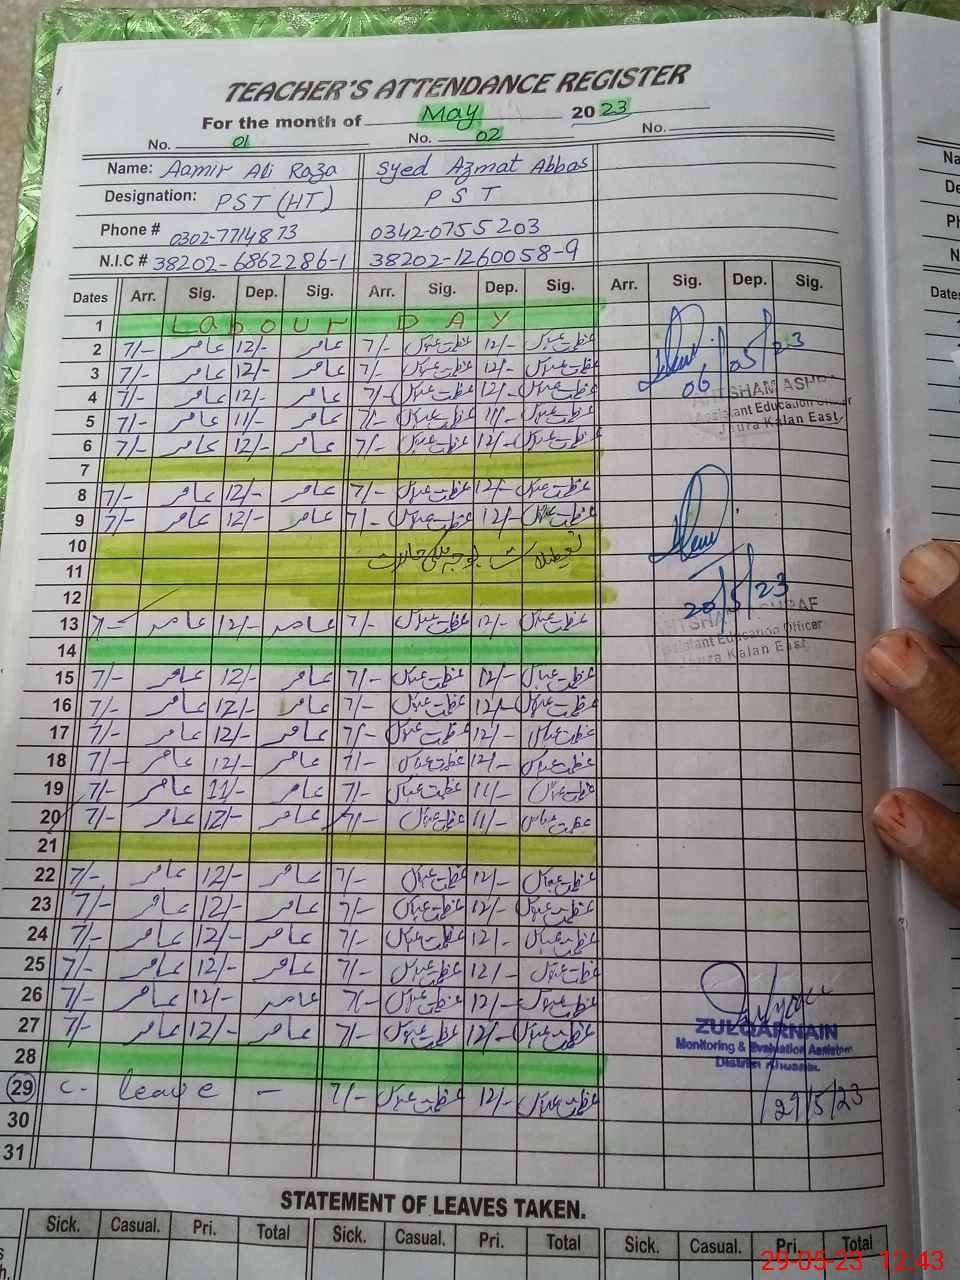 TEACHER'S ATTENDANCE REGISTER
For the month of May 2023
No. 01 No. 02 No.
Name: Aamir Ali Raza Syed Azmat Abbas
Designation: PST (HT) PST
Phone # 0302-7714873 0342-0755203
N.I.C # 38202-6862286-1 38202-1260058-9
Dates Arr. Sig. Dep. Sig. Arr. Sig. Dep. Sig. Arr. Sig. Dep. Sig.
1 Labour DAY
2 7/- عامر 12/- عامر 7/- عظمت عباس 12/- عظمت عباس
3 7/- عامر 12/- عامر 7/- عظمت عباس 12/- عظمت عباس
06/05/23
4 7/- عامر 12/- عامر 7/- عظمت عباس 12/- عظمت عباس
AHTSHAM ASHR
5 7/- عامر 11/- عامر 7/- عظمت عباس 11/- عظمت عباس
Assistant Education Officer
Jaura Kalan East
6 7/- عامر 12/- عامر 7/- عظمت عباس 12/- عظمت عباس
7
8 7/- عامر 12/- عامر 7/- عظمت عباس 12/- عظمت عباس
9 7/- عامر 12/- عامر 7/- عظمت عباس 12/- عظمت عباس
10
11 تعطیلات بوجہ ملکی حالات
12
20/5/23
13 7/- عامر 12/- عامر 7/- عظمت عباس 12/- عظمت عباس
AHTSHAM ASHRAF
Assistant Education Officer
Jaura Kalan East
14
15 7/- عامر 12/- عامر 7/- عظمت عباس 12/- عظمت عباس
16 7/- عامر 12/- عامر 7/- عظمت عباس 12/- عظمت عباس
17 7/- عامر 12/- عامر 7/- عظمت عباس 12/- عظمت عباس
18 7/- عامر 12/- عامر 7/- عظمت عباس 12/- عظمت عباس
19 7/- عامر 11/- عامر 7/- عظمت عباس 11/- عظمت عباس
20 7/- عامر 12/- عامر 7/- عظمت عباس 11/- عظمت عباس
21
22 7/- عامر 12/- عامر 7/- عظمت عباس 12/- عظمت عباس
23 7/- عامر 12/- عامر 7/- عظمت عباس 12/- عظمت عباس
24 7/- عامر 12/- عامر 7/- عظمت عباس 12/- عظمت عباس
25 7/- عامر 12/- عامر 7/- عظمت عباس 12/- عظمت عباس
26 7/- عامر 12/- عامر 7/- عظمت عباس 12/- عظمت عباس
27 7/- عامر 12/- عامر 7/- عظمت عباس 12/- عظمت عباس
ZULQARNAIN
Monitoring & Evaluation Assistant
District Khushab
28
29 C- leave - 7/- عظمت عباس 12/- عظمت عباس
29/5/23
30
31
STATEMENT OF LEAVES TAKEN.
Sick. Casual. Pri. Total Sick. Casual. Pri. Total Sick. Casual. Pri. Total
29-05-23 12:43